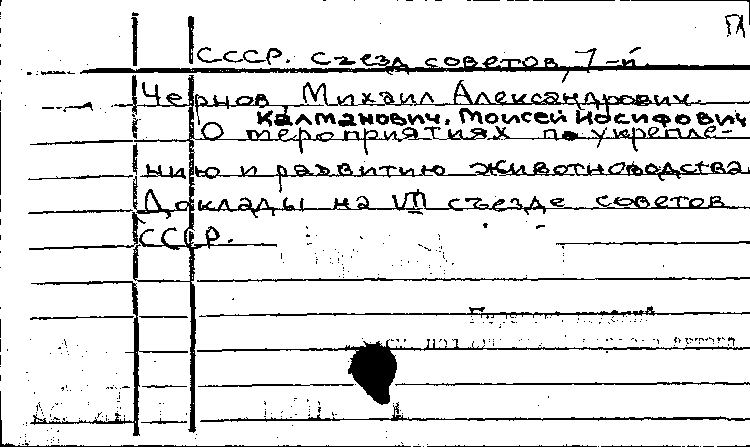 ГА
СССР. Съезд советов, 7-й.
Чернов, Михаил Александрович.
Калманович, Моисей Иосифович
О мероприятиях по укрепле-
нию и развитию животноводства.
Доклады на VII съезде советов
СССР.